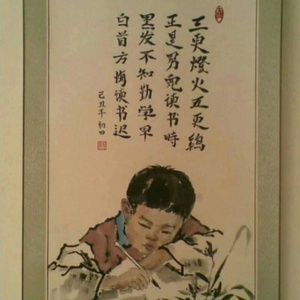 三更燈火五更鷄
正是男兒读书時
黑发不知勤学早
白首方悔读书迟
己丑年初四